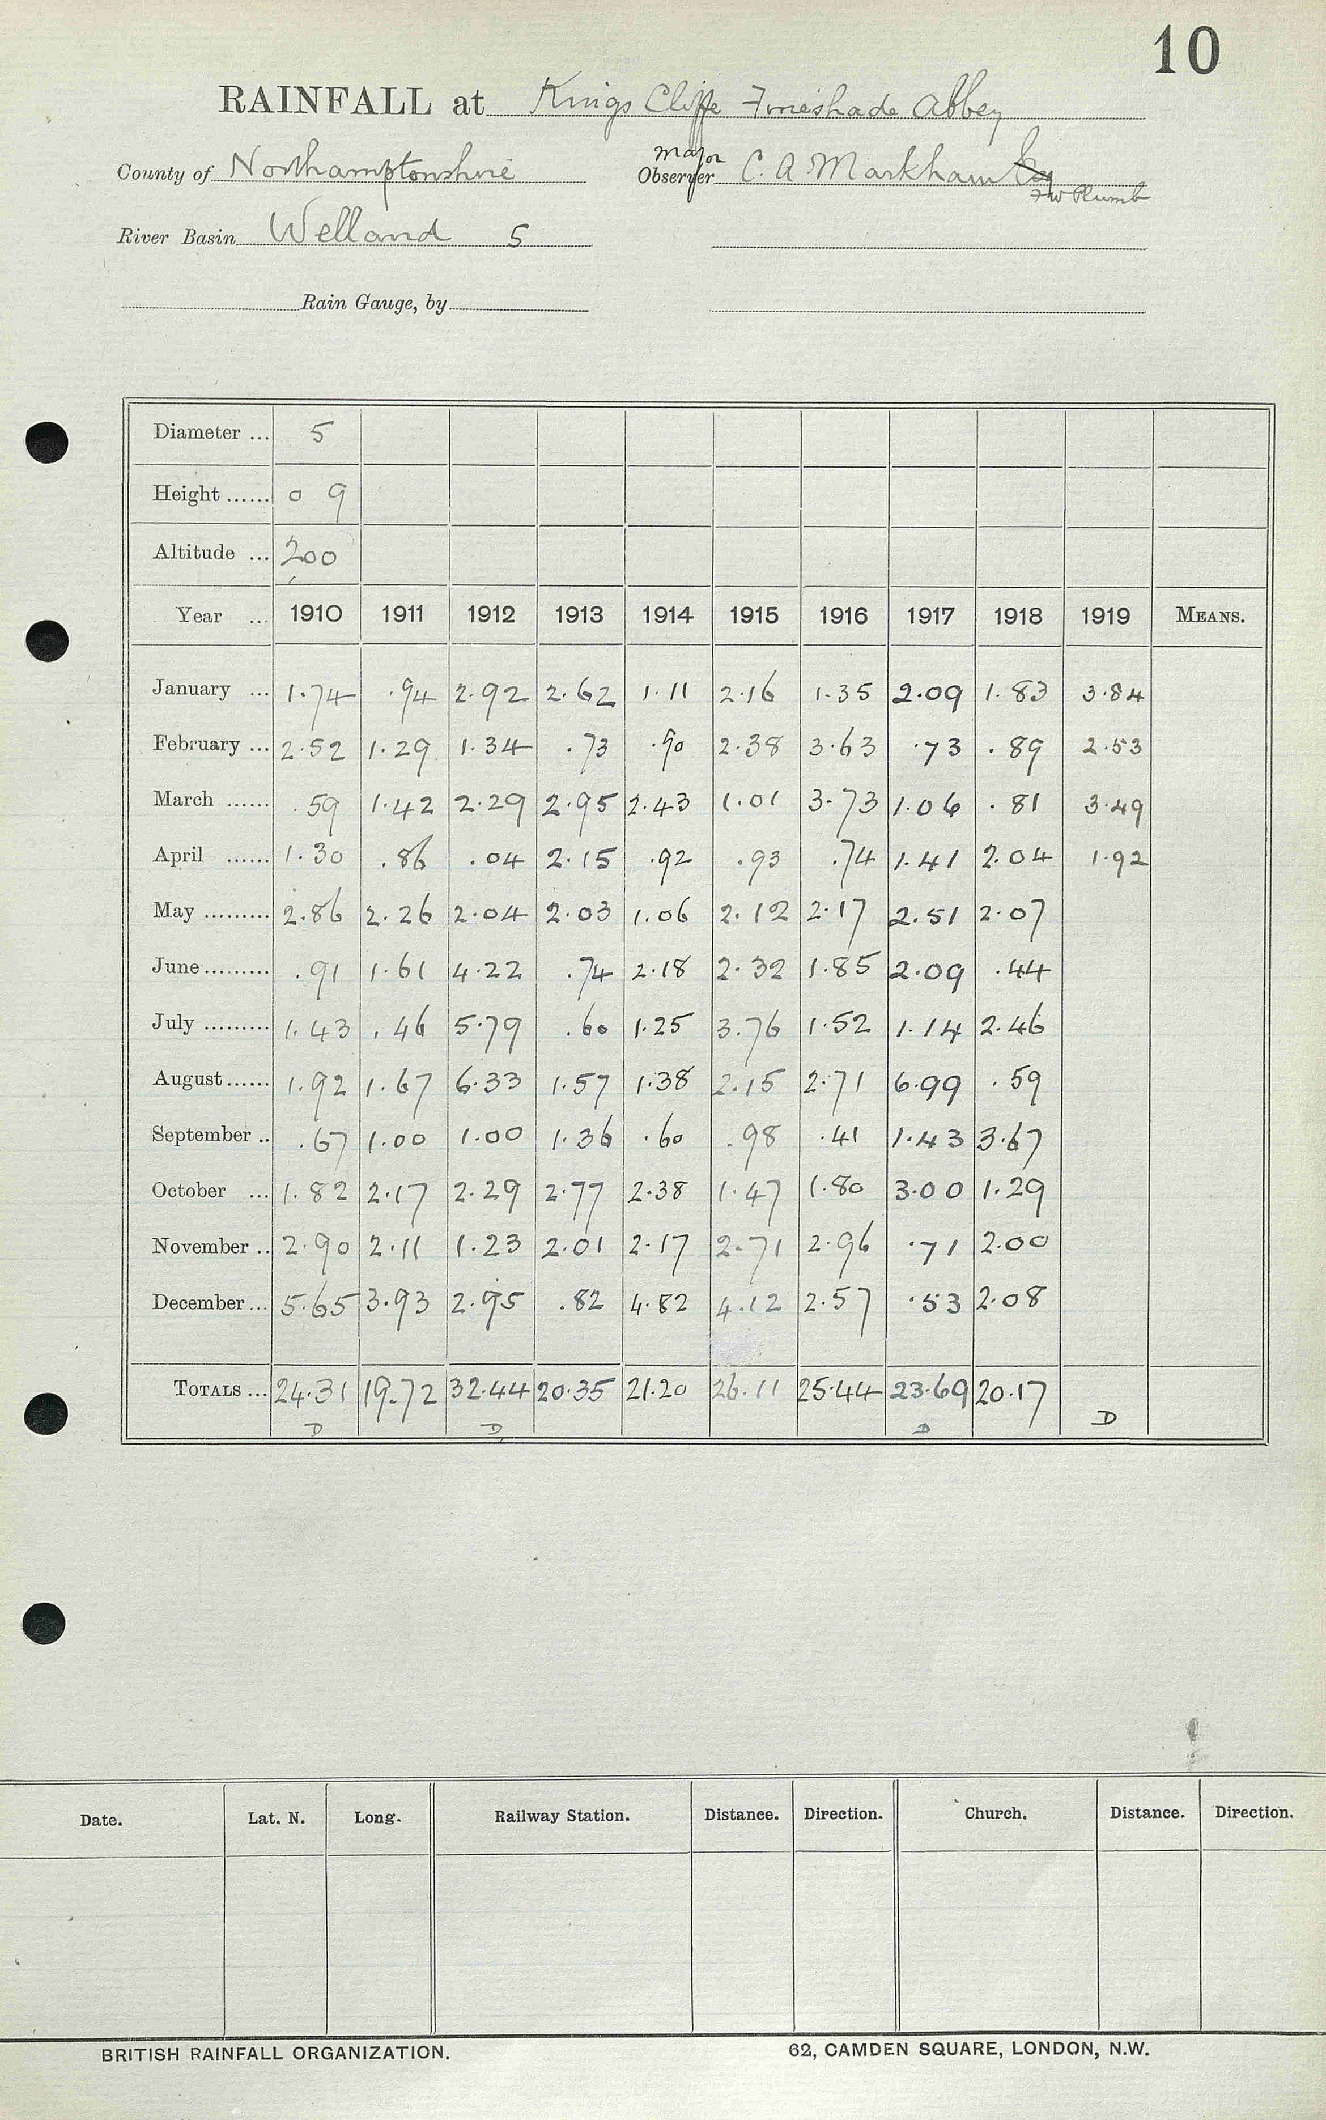 10
RAINFALL at Kings Cliffe Fineshade Abbey
County of Northamptonshire
Major
Observer C. A Markham Esq
F W Plumb
River Basin Welland 5
Rain Gauge, by
Diameter ... 5
Height ...... 0 9
Altitude ... 200
Year ... 1910 1911 1912 1913 1914 1915 1916 1917 1918 1919 MEANS.
January ... 1.74 .94 2.92 2.62 1.11 2.16 1.35 2.09 1.83 3.84
February ... 2.52 1.29 1.34 .73 .90 2.38 3.63 .73 .89 2.53
March ...... .59 1.42 2.29 2.95 2.43 1.01 3.73 1.06 .81 3.49
April ...... 1.30 .86 .04 2.15 .92 .93 .74 1.41 2.04 1.92
May ......... 2.86 2.26 2.04 2.03 1.06 2.12 2.17 2.51 2.07
June ......... .91 1.61 4.22 .74 2.18 2.32 1.85 2.09 .44
July ......... 1.43 .46 5.79 .60 1.25 3.76 1.52 1.14 2.46
August ...... 1.92 1.67 6.33 1.57 1.38 2.15 2.71 6.99 .59
September .. .67 1.00 1.00 1.36 .60 .98 .41 1.43 3.67
October ... 1.82 2.17 2.29 2.77 2.38 1.47 1.80 3.00 1.29
November .. 2.90 2.11 1.23 2.01 2.17 2.71 2.96 .71 2.00
December ... 5.65 3.93 2.95 .82 4.82 4.12 2.57 .53 2.08
TOTALS ... 24.31 19.72 32.44 20.35 21.20 26.11 25.44 23.69 20.17
D D D D
Date. Lat. N. Long. Railway Station. Distance. Direction. Church. Distance. Direction.
BRITISH RAINFALL ORGANIZATION. 62, CAMDEN SQUARE, LONDON, N.W.